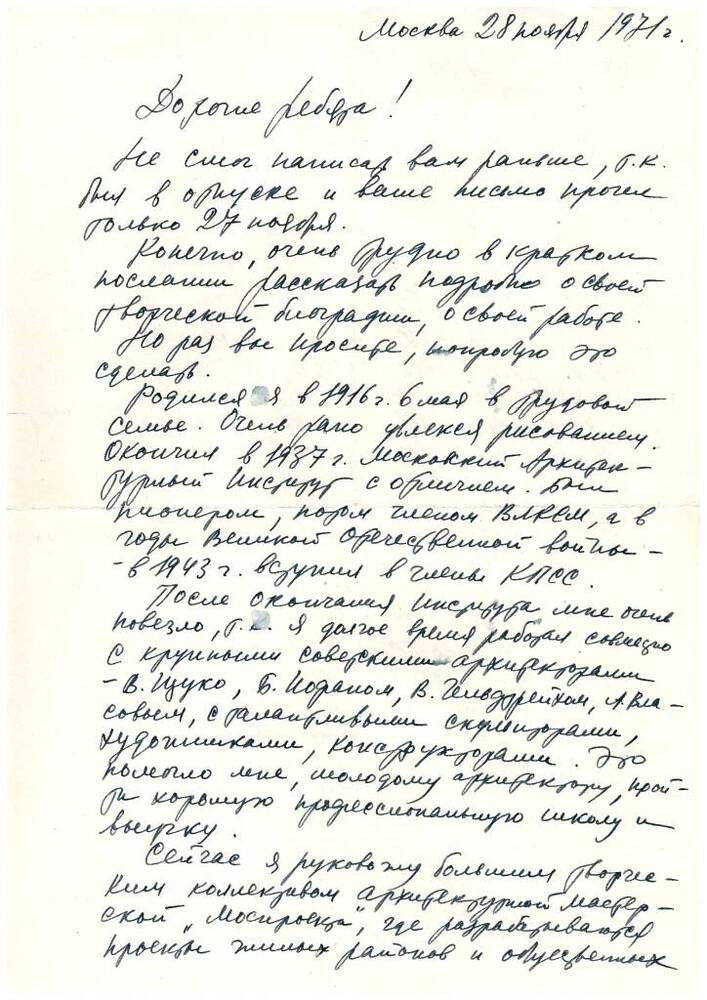 Москва 28 ноября 1971 г.
Дорогие ребята!
Не смог написать вам раньше, т.к.
был в отпуске и ваше письмо прочел
только 27 ноября.
Конечно, очень трудно в кратком
послании рассказать подробно о своей
творческой биографии, о своей работе.
Но раз вы просите, попробую это
сделать.
Родился я в 1916 г. 6 мая в трудовой
семье. Очень рано увлекся рисованием.
Окончил в 1937 г. Московский Архитек-
турный Институт с отличием. Был
пионером, потом членом ВЛКСМ, а в
годы Великой Отечественной войны -
- в 1943 г. вступил в члены КПСС.
После окончания Института мне очень
повезло, т.к. я долгое время работал совместно
с крупными советскими архитекторами
- В. Щуко, Б. Иофаном, В. Гельфрейхом, А. Вла-
совым, с талантливыми скульпторами,
художниками, конструкторами. Это
помогло мне, молодому архитектору, прой-
ти хорошую профессиональную школу и
выучку.
Сейчас я руковожу большим творчес-
ким коллективом архитектурной мастер-
ской „Моспроекта", где разрабатываются
проекты жилых районов и общественных